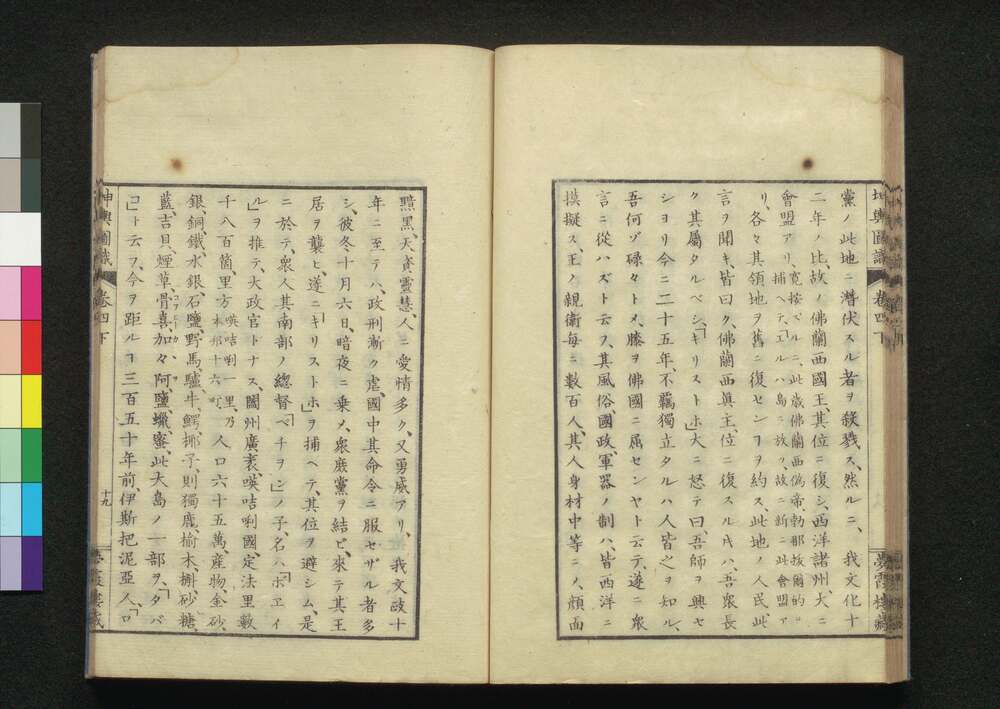 坤輿圖識
卷四下
夢霞樓藏
黨ノ此地ニ潜伏スル者ヲ殺戮ス、然ルニ、我文化十
二年ノ比、故ノ佛蘭西國王、其位ニ復シ、西洋諸州、大ニ
會盟アリ、寛按ズルニ、此歲佛蘭西偽帝、勃那把爾的ヲ
捕ヘテ、「エルハ島ニ放ツ、故ニ新ニ此會盟ア
リ、各々其領地ヲ舊ニ復センヿヲ約ス、此地ノ人民、此
言ヲ聞キ、皆曰ク、佛蘭西眞主、位ニ復スル𪜈ハ、吾衆長
ク其屬タルベシ、「キリストホ」大ニ怒テ曰、吾師ヲ興セ
ショリ今ニ二十五年、不羈獨立タルハ人皆之ヲ知ル、
吾何ゾ碌々トメ、膝ヲ佛國ニ屈センヤト云テ、遂ニ衆
言ニ從ハズト云フ、其風俗、國政、軍器ノ制ハ皆西洋ニ
摸擬ス、王ノ親衛每ニ數百人、其人身材中等ニノ、顏面
黲黑、天資靈慧、人ニ愛情多ク、又勇威アリ、我文政十
年ニ至テハ、政刑漸ク虐、國中其命令ニ服セザル者多
シ、彼冬十月六日、暗夜ニ乗メ、衆厥黨ヲ結ビ、來テ其王
居ヲ襲ヒ、遂ニ「キリストホ」ヲ捕ヘテ、其位ヲ避シム、是
ニ於テ、衆人其南部ノ總督「ペチヲン」ノ子、名ハ「ボエイ
ル」ヲ推テ、大政官トナス、闔州廣袤、嘆咭唎國定法里數
千八百箇、里方嘆咭唎一里、乃
本邦十六町、人口六十五萬、産物、金砂、
銀、銅、鐵、水銀、石鹽、野馬、驢、牛、鰐、椰子、則獨鹿、榆木、槲、砂糖、
藍、吉貝、煙草、骨喜、加々阿、鹽、蠟、蜜、此大島ノ一部ヲ、「タバ
コ」ト云フ、今ヲ距ルヿ三百五十年前、伊斯把泥亞人、「ロ
坤輿圖識
卷四下
十九
夢霞樓藏